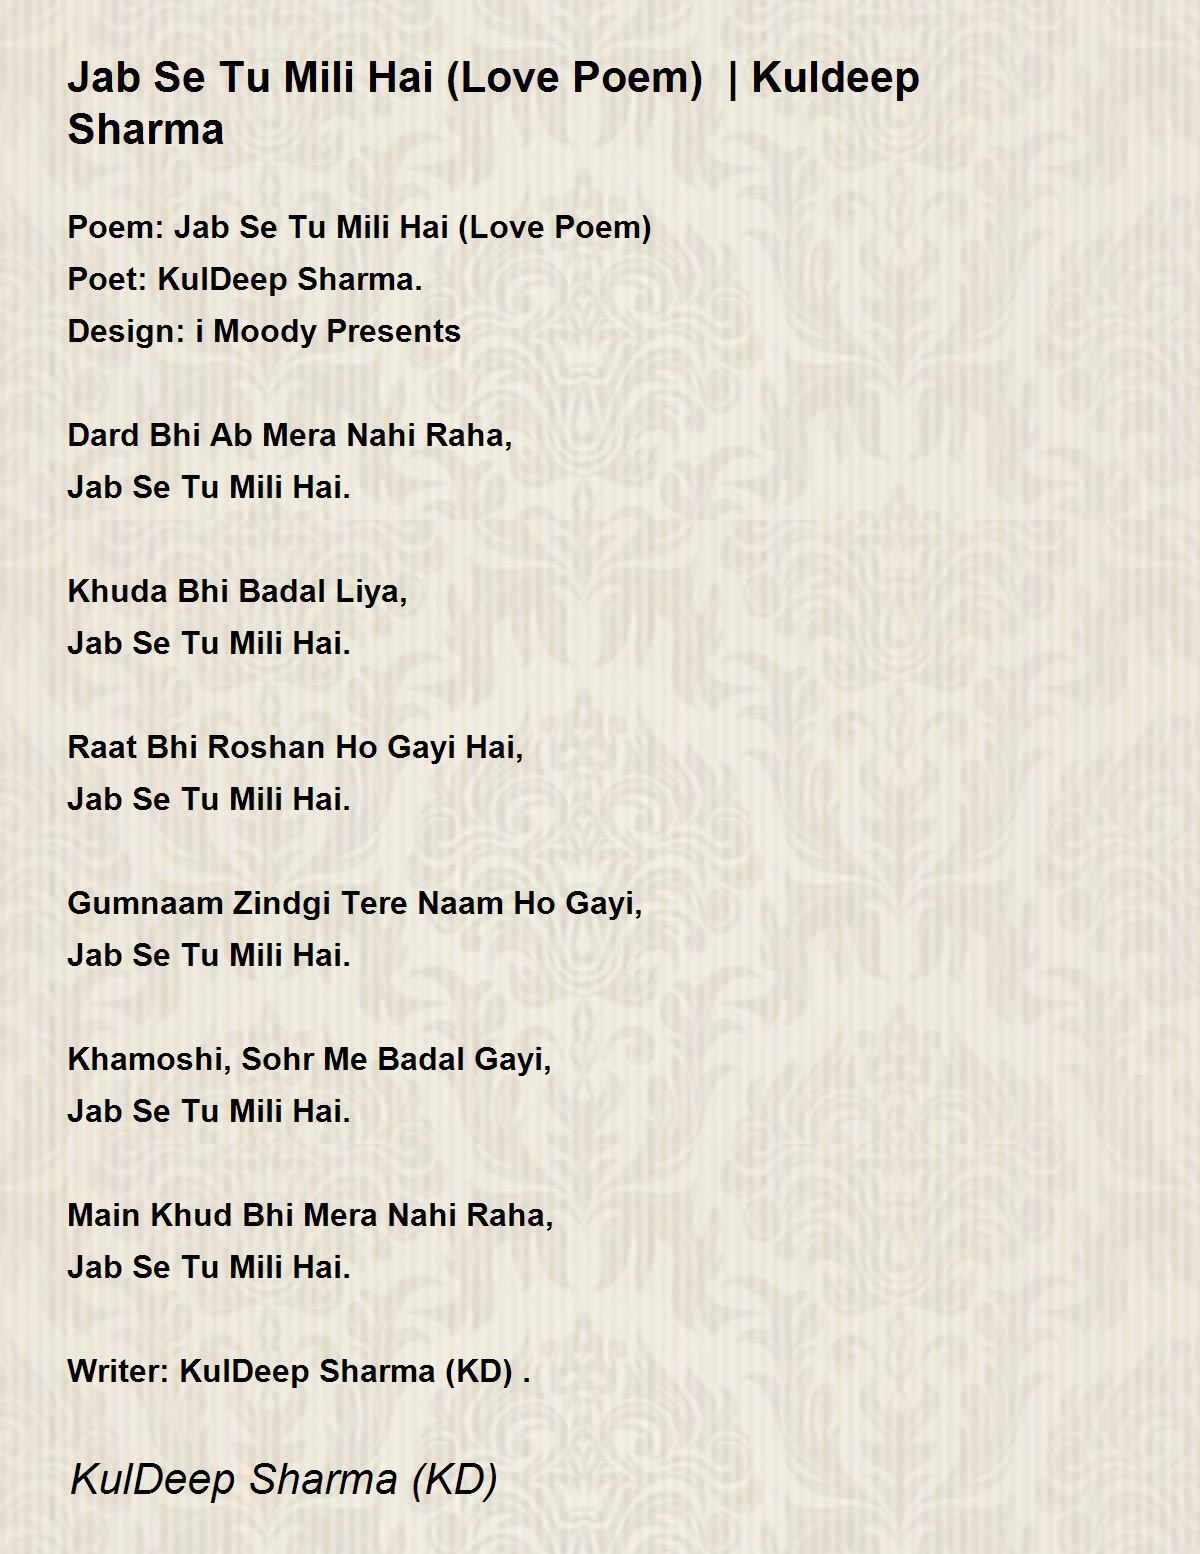 Jab Se Tu Mili Hai (Love Poem) | Kuldeep
Sharma
Poem: Jab Se Tu Mili Hai (Love Poem)
Poet: KulDeep Sharma.
Design: i Moody Presents
Dard Bhi Ab Mera Nahi Raha,
Jab Se Tu Mili Hai.
Khuda Bhi Badal Liya,
Jab Se Tu Mili Hai.
Raat Bhi Roshan Ho Gayi Hai,
Jab Se Tu Mili Hai.
Gumnaam Zindgi Tere Naam Ho Gayi,
Jab Se Tu Mili Hai.
Khamoshi, Sohr Me Badal Gayi,
Jab Se Tu Mili Hai.
Main Khud Bhi Mera Nahi Raha,
Jab Se Tu Mili Hai.
Writer: KulDeep Sharma (KD) .
KulDeep Sharma (KD)